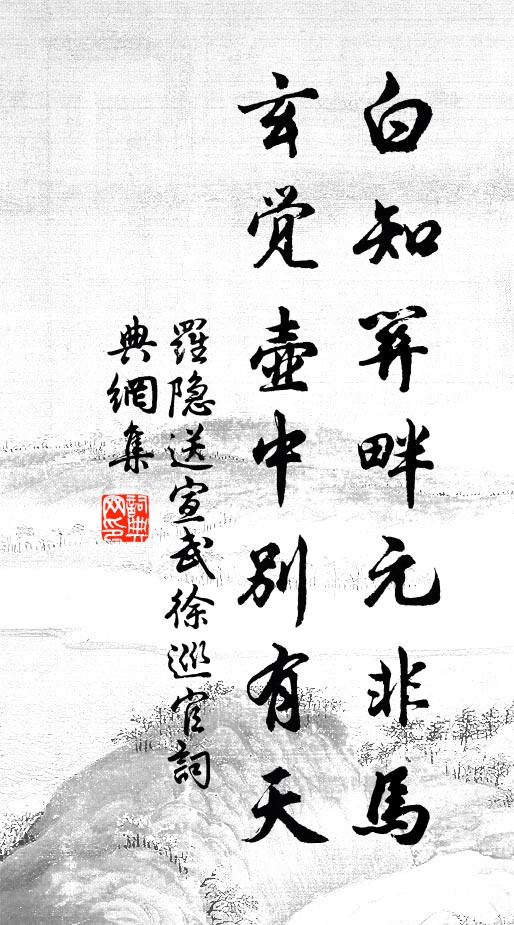 白知筭畔元非馬
玄覺壺中別有天
羅隐送宣武徐巡官詞
典網集
詞典網印